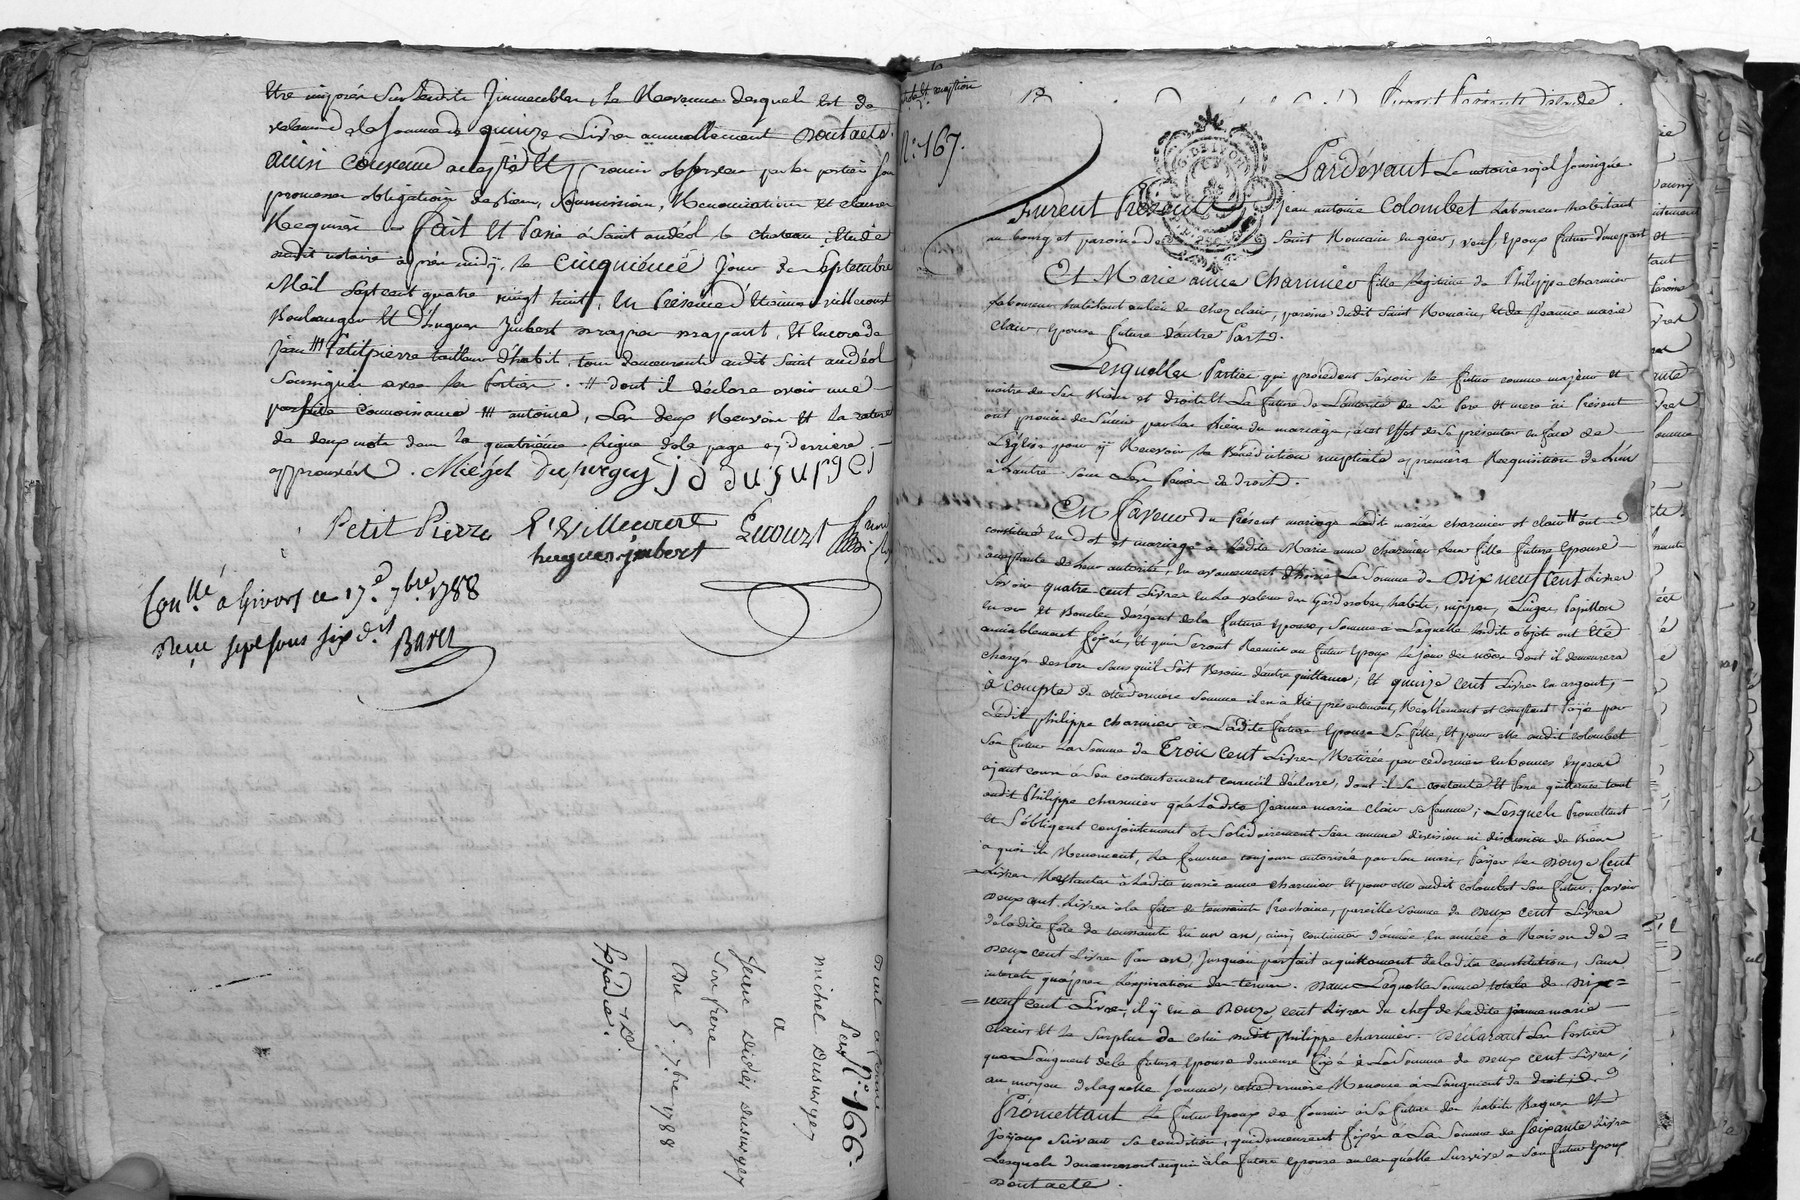 être imposés sur lesdits Immeubles, le Revenu desquels est de
valeur de la somme de quinze Livres annuellement Dont acte.
ainsi convenu accepté et promis observer par les parties sous
promesses obligations de biens, soumissions, Renonciations et clauses
Requises. Fait et Passé à Saint andéol le chateau, Etude
dudit notaire après midy, le Cinquième Jour de Septembre
Mil sept cent quatre vingt huit, En Présence d'Etienne villecourt
Boulanger Et d'hugues Jmbert
jean ### Petitpierre tailleur d'habit, tous demeurants audit Saint andéol
Soussignés avec les Parties. # dont il déclare avoir une
parfaite connoissance ### antoine, Les deux Renvois Et la rature
de deux mots dans la quatrième Ligne de la page cy derriere
approuvés. Michel Dusurgey j d dusurgei
Petit Pierre E Villecourt
hugues jmbert
Conllé à Givors ce 17e 7bre 1788
Reçu sept sous six drs
Baret
N° 166.
michel Dusurgey
a
Jean didier dusurgey
son frere
Du 5. 7bre 1788
Expédié.
N° 167.
G. DE LYON
Pardevant Le notaire royal soussigné
Furent Présents jean antoine Colombet Laboureur habitant
au bourg et paroisse de Saint Romain en gier, veuf, Epoux futur d'une part
Et Marie anne Charmier fille Légitime de Philippe charmier
Laboureur habitant au lieu de chez clair, paroisse dudit Saint Romain, et de Jeanne marie
Clair, Epouse future d'autre Part.
Lesquelles Parties qui procèdent savoir le futur comme majeur et
maitre de ses biens et droits Et La future de L'autorité de ses Pere et mere ici Présents
ont promis de s'unir par les liens du mariage, à cet Effet de se présenter en face de
L'église pour y Recevoir la Bénédiction nuptiale à premiere Requisition de L'un
à L'autre sous Les Peines de droit.
En faveur du Présent mariage Ledit mariés charmier et clair # ont
constitué en dot et mariage à Ladite Marie anne charmier Leur fille future Epouse
acceptante de leur autorité, en avancement d'hoirie La Somme de Dix neuf cent Livres
Savoir quatre cent Livres En La valeur des Garderobes, habits, nippes, Linges, Papillon
en or Et Boucles d'argent de la future Epouse, somme à Laquelle lesdits objets ont été
amiablement fixés, Et qui seront Remis au futur Epoux le jour des nôces dont il demeurera
chargé dès lors sans qu'il soit Besoin d'autre quittance; Et quinze cent Livres en argent,
à compte de cette derniere somme il en a été présentement, Réellement et comptant Payé par
Ledit philippe charmier à Ladite future Epouse Sa fille, Et pour elle audit colombet
Son futur La Somme de Trois cent Livres, Retirée par ce dernier en bonnes Especes
ayant cours à son contentement comme il déclare, dont il se contente Et Passe quittance tant
audit Philippe charmier qu'à Ladite Jeanne marie Clair sa femme; Lesquels Promettent
Et S'obligent conjointement et Solidairement sans aucune division ni discussion de Biens
à quoi ils Renoncent, La femme toujours autorisée par Son mari, Payer Les Douze Cent
Livres Restantes à Ladite marie anne charmier Et pour elle audit colombet Son futur, savoir
Deux cent Livres à la fête de toussaints Prochaine, pareille Somme de Deux cent Livres
de ladite fête de toussaints En un an, ainsi continuer d'année en année à Raison de
Deux cent Livres Par an, Jusqu'au parfait aquittement de ladite constitution, sans
interets qu'après L'expiration des termes. Dans Laquelle Somme totale de Dix
neuf cent Livres, il y en a Douze cent Livres du chef de Ladite jeanne marie
Clair, Et le Surplus de celui dudit philippe charmier. Déclarent Les Parties
que L'augment de la future Epouse demeure fixé à La Somme de Deux cent Livres;
au moyen de laquelle somme, cette derniere Renonce à L'augment de droit.
Promettant Le futur Epoux de fournir à Sa future des habits Bagues Et
joyaux suivant Sa condition, qui demeurent fixés à La Somme de Soixante Livres
Lesquels demeureront acquis à la future Epouse au cas qu'elle Survive à Son futur Epoux
Dont acte.